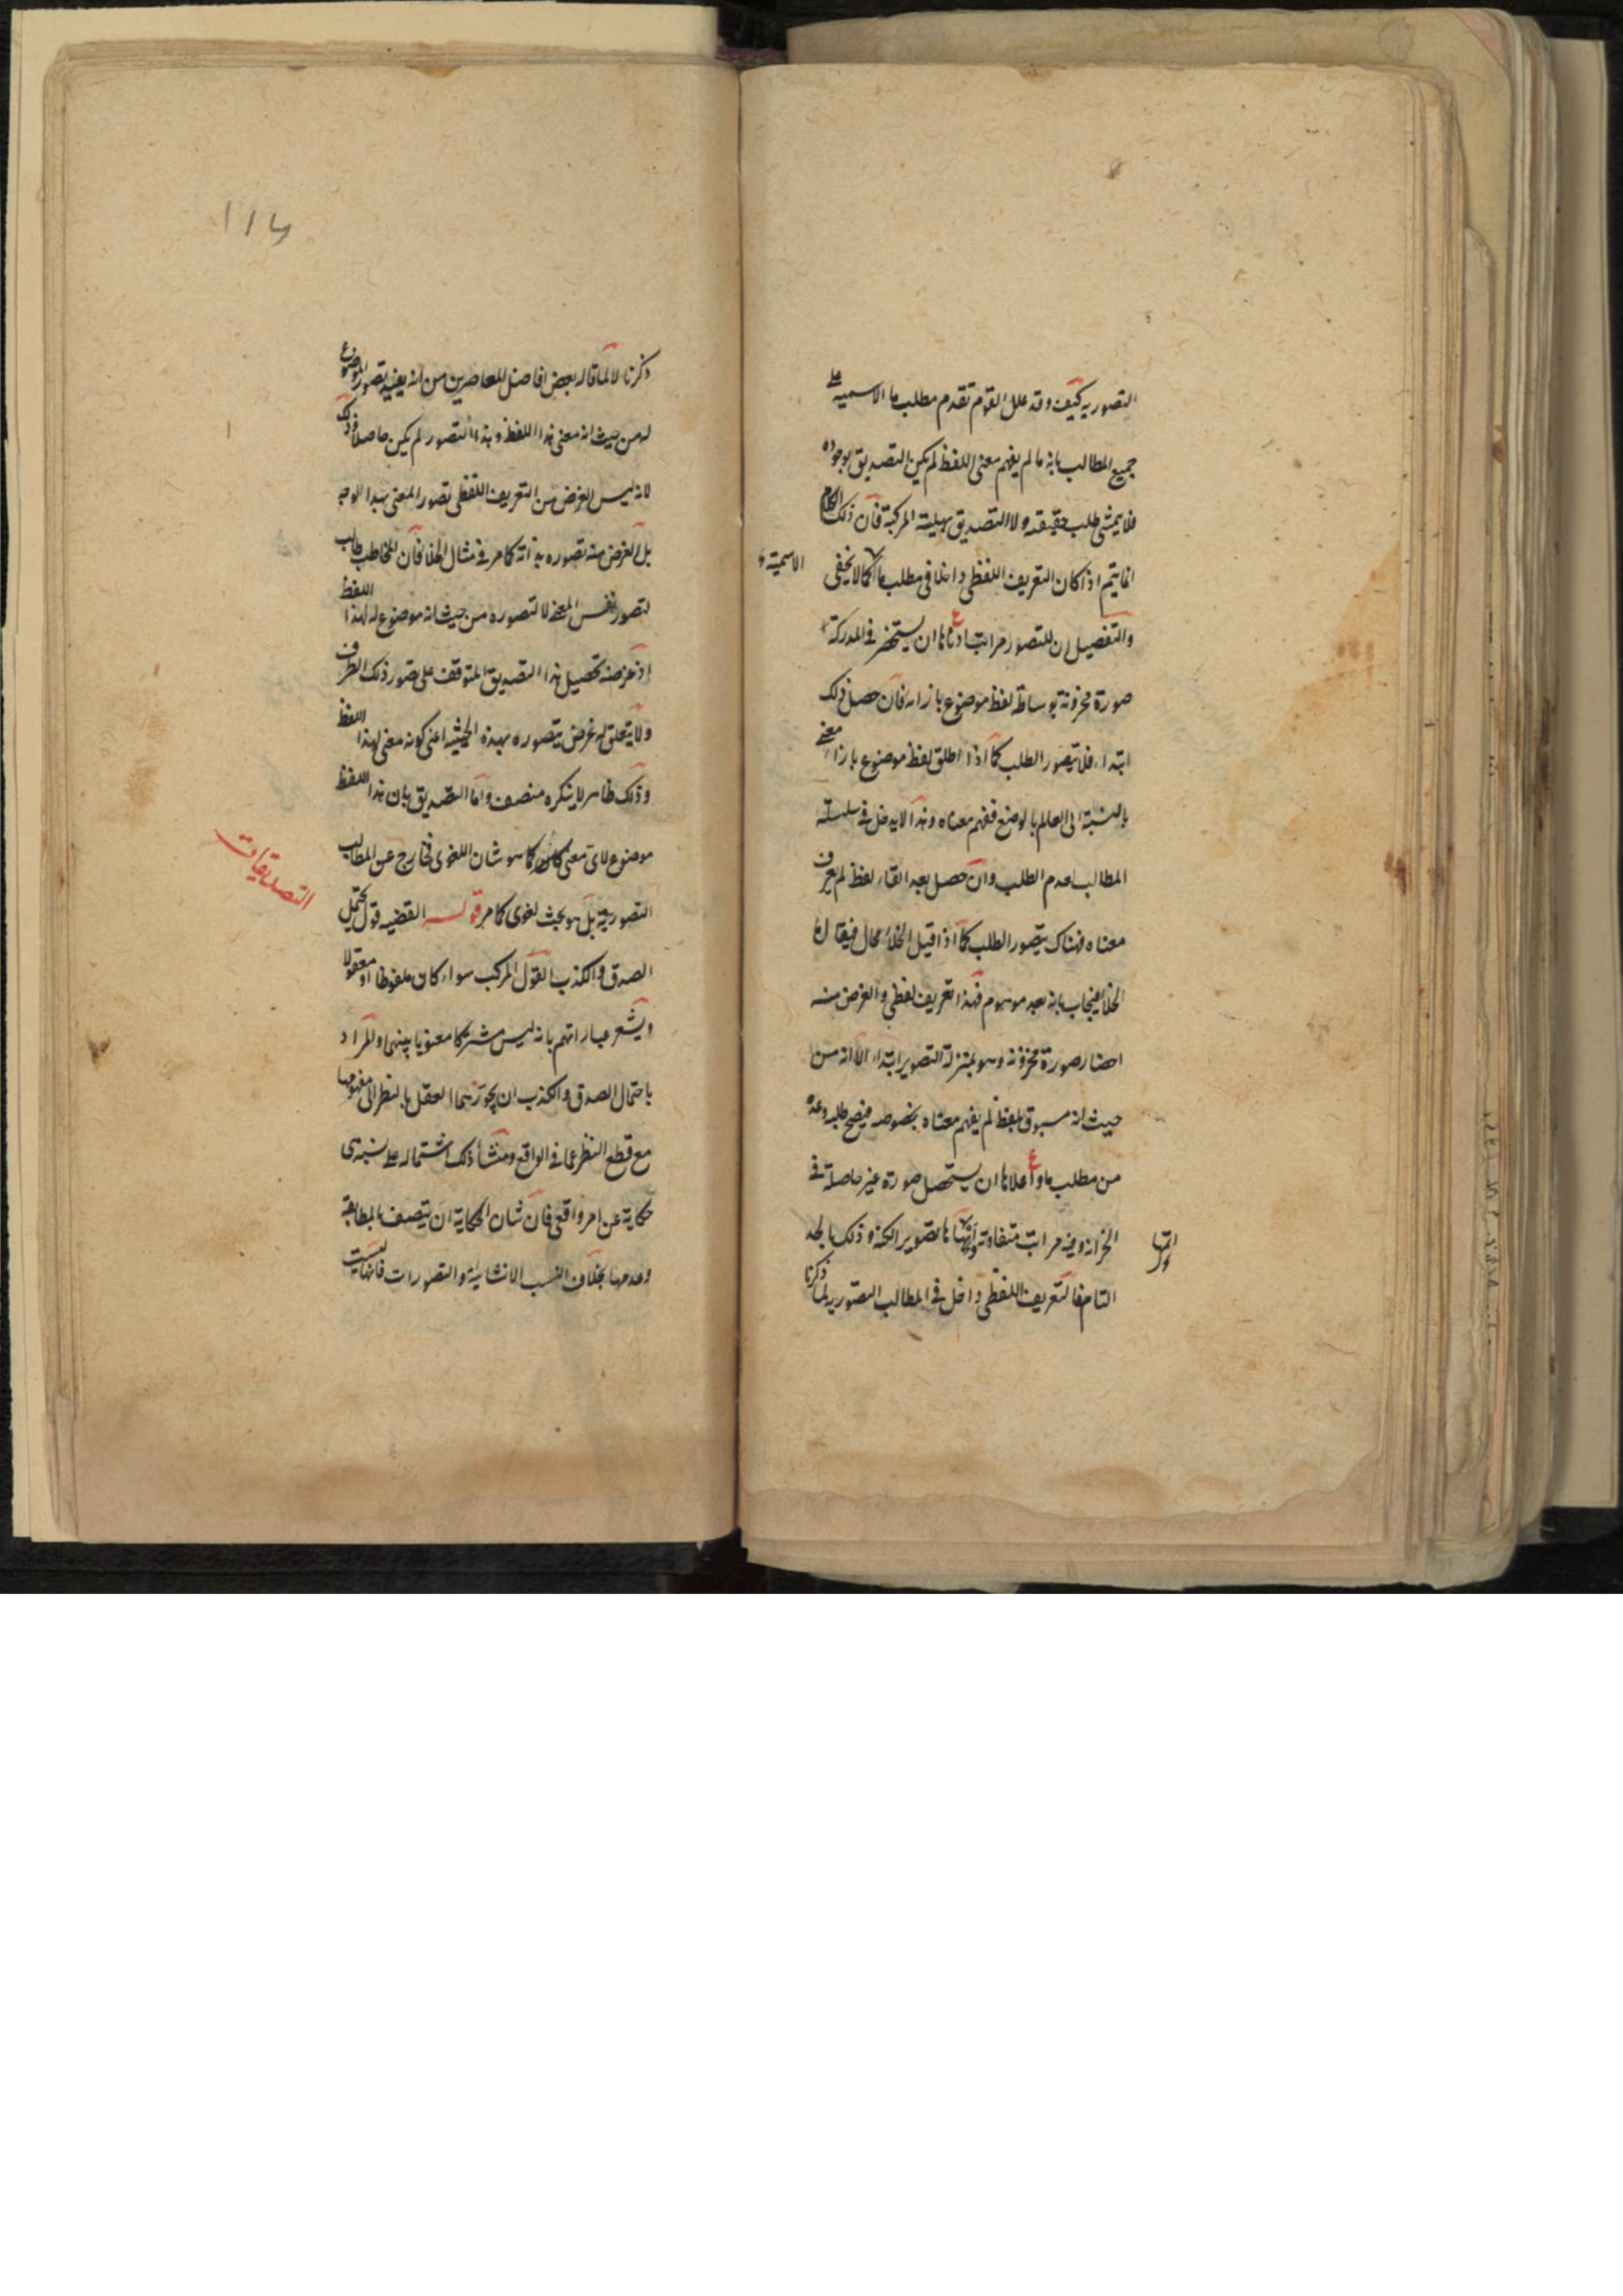 التصوريه كيف وقد علل القوم تقدم مطلب ما الاسميه على
جميع المطالب بانه ما لم يفهم معنى اللفظ لم يكن التصديق بوجوده
فلا يمشى طلب حقيقته ولا التصديق بهليته المركبة فان ذلك الكلام
انما يتم اذا كان التعريف اللفظى داخلا فى مطلب ما كما لا يخفى
الاسمية
والتفصيل ان للتصور مراتب ادناها ان يستحضر فى المدركة
صورة مخزونة بوساطة لفظ موضوع بازائه فان حصل ذلك
ابتداء فلا يتصور الطلب كما اذا اطلق لفظ موضوع بازاء معنى
بالنسبة الى العالم بالوضع ففهم معناه وهذا لا يدخل فى سلسلة
المطالب لعدم الطلب وان حصل بعد القاء لفظ لم يعرف
معناه فهناك يتصور الطلب كما اذا قيل الخلاء محال فيقال ما
الخلاء فيجاب بانه بعد موهوم فهذا تعريف لفظى والغرض منه
احضار صورة مخزونة وهو بمنزلة التصوير ابتداء الا انه من
حيث انه مسبوق بلفظ لم يفهم معناه بخصوصه فيصح طلبه وعده
من مطلب ما واعلاها ان يستحصل صورة غير حاصلة فى
الخزانة وفيه مراتب متفاوتة وانهاها تصوير الكنه وذلك بالحد
التام فالتعريف اللفظى داخل فى المطالب التصوريه لما ذكرنا
١١٦
ذكرنا لا لما قاله بعض افاضل المعاصرين من انه يفيد تصور الموضوع
له من حيث انه معنى هذا اللفظ وهذا التصور لم يكن حاصلا وذلك
لانه ليس الغرض من التعريف اللفظى تصور المعنى بهذا الوجه
بل الغرض منه تصوره بذاته كما مر فى مثال الخلا فان المخاطب طالب
لتصور نفس المعنى لا لتصوره من حيث انه موضوع له لهذا اللفظ
اذ غرضه تحصيل هذا التصديق المتوقف على تصور ذلك الطرف
ولا يتعلق له غرض بتصوره بهذه الحيثية اعنى كونه معنى لهذا اللفظ
وذلك ظاهر لا ينكره منصف واما التصديق بان هذا اللفظ
موضوع لاى معنى كان كما هو شان اللغوى فخارج عن المطالب
التصورية بل هو بحث لغوى كما مر قوله القضيه قول يحتمل
التصديقات
الصدق والكذب القول المركب سواء كان ملفوظا او معقولا
ويشعر عباراتهم بانه ليس مشتركا معنويا بينهما والمراد
باحتمال الصدق والكذب ان يجوزهما العقل بالنظر الى مفهومها
مع قطع النظر عما فى الواقع ومنشأ ذلك اشتماله على نسبة هى
حكاية عن امر واقعى فان شان الحكاية ان يتصف بالمطابقة
وعدمها بخلاف النسب الانشائية والتصورات فانها ليست